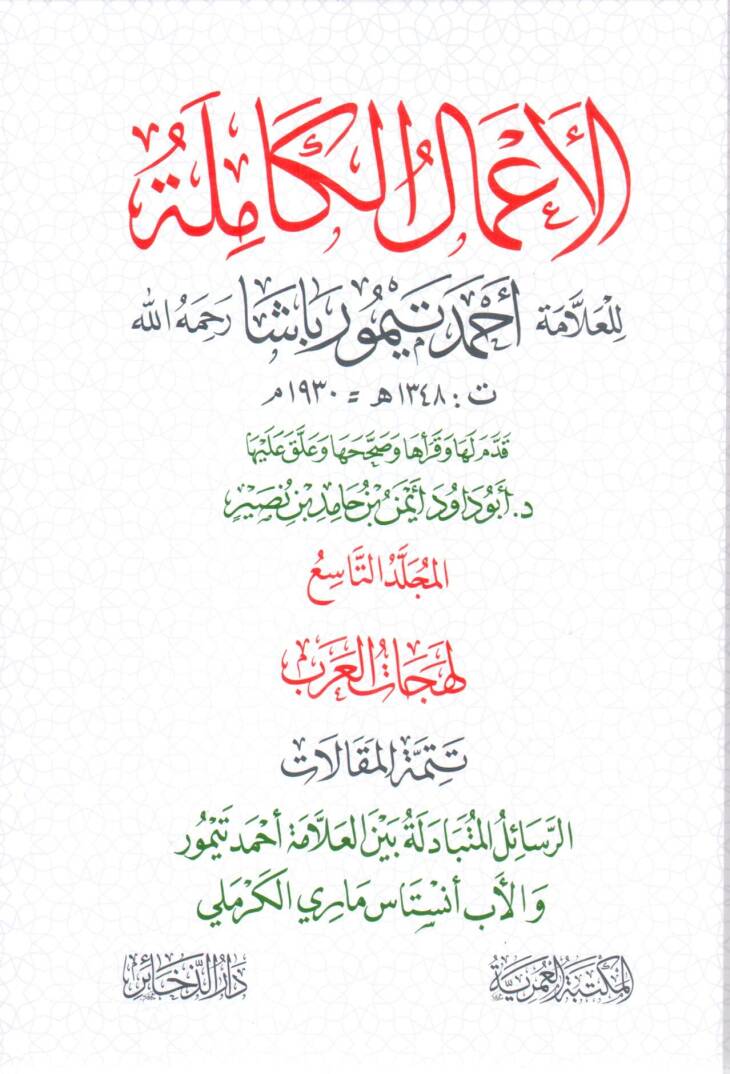 الأَعْمَالُ الكَامِلَةُ
لِلْعَلَّامَة أَحْمَد تَيْمُور بَاشَا رَحِمَهُ الله
ت : ١٣٤٨هـ = ١٩٣٠م
قَدَّمَ لَهَا وَقَرَأَهَا وَصَحَّحَهَا وَعَلَّقَ عَلَيْهَا
د. أَبُو دَاوُدَ أَيْمَنُ بْنُ حَامِدِ بْنِ نُصَيْرٍ
المُجَلَّدُ التَّاسِعُ
لهَجَاتُ العَرَبِ
تَتِمَّةُ المَقَالَات
الرَّسَائِلُ المُتَبَادَلَةُ بَيْنَ العَلَّامَة أَحْمَد تَيْمُور
وَالأَب أَنِسْتَاس مَارِي الكَرْمَلي
المَكْتَبَةُ العُمَرِيَّةُ
دَارُ الذَّخَائِرِ